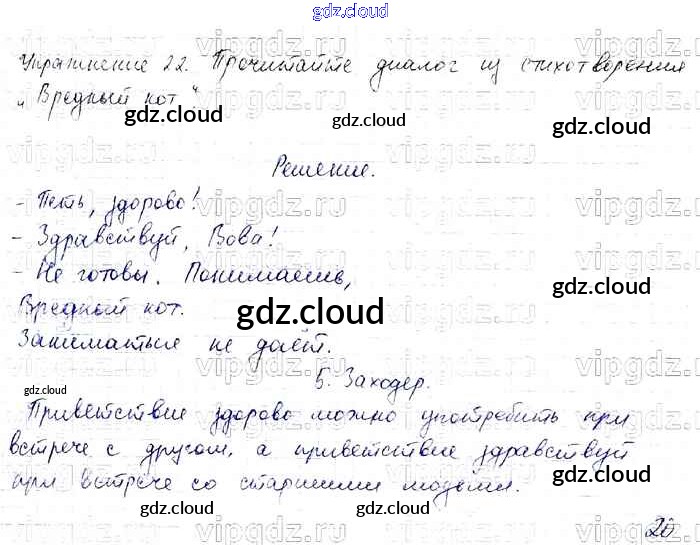 gdz.cloud
Упражнение 22. Прочитайте диалог из стихотворения
„Вредный кот“
gdz.cloud gdz.cloud gdz.cloud
Решение.
- Петь, здорово!
- Здравствуй, Вова!
- Не готовы. Понимаешь,
Вредный кот.
gdz.cloud gdz.cloud
Заниматься не даёт.
Б. Заходер.
gdz.cloud gdz.cloud
Приветствие здорово можно употребить при
встрече с другом, а приветствие здравствуй
при встрече со старшими людьми.
gdz.cloud gdz.cloud
20
vipgdz.ru